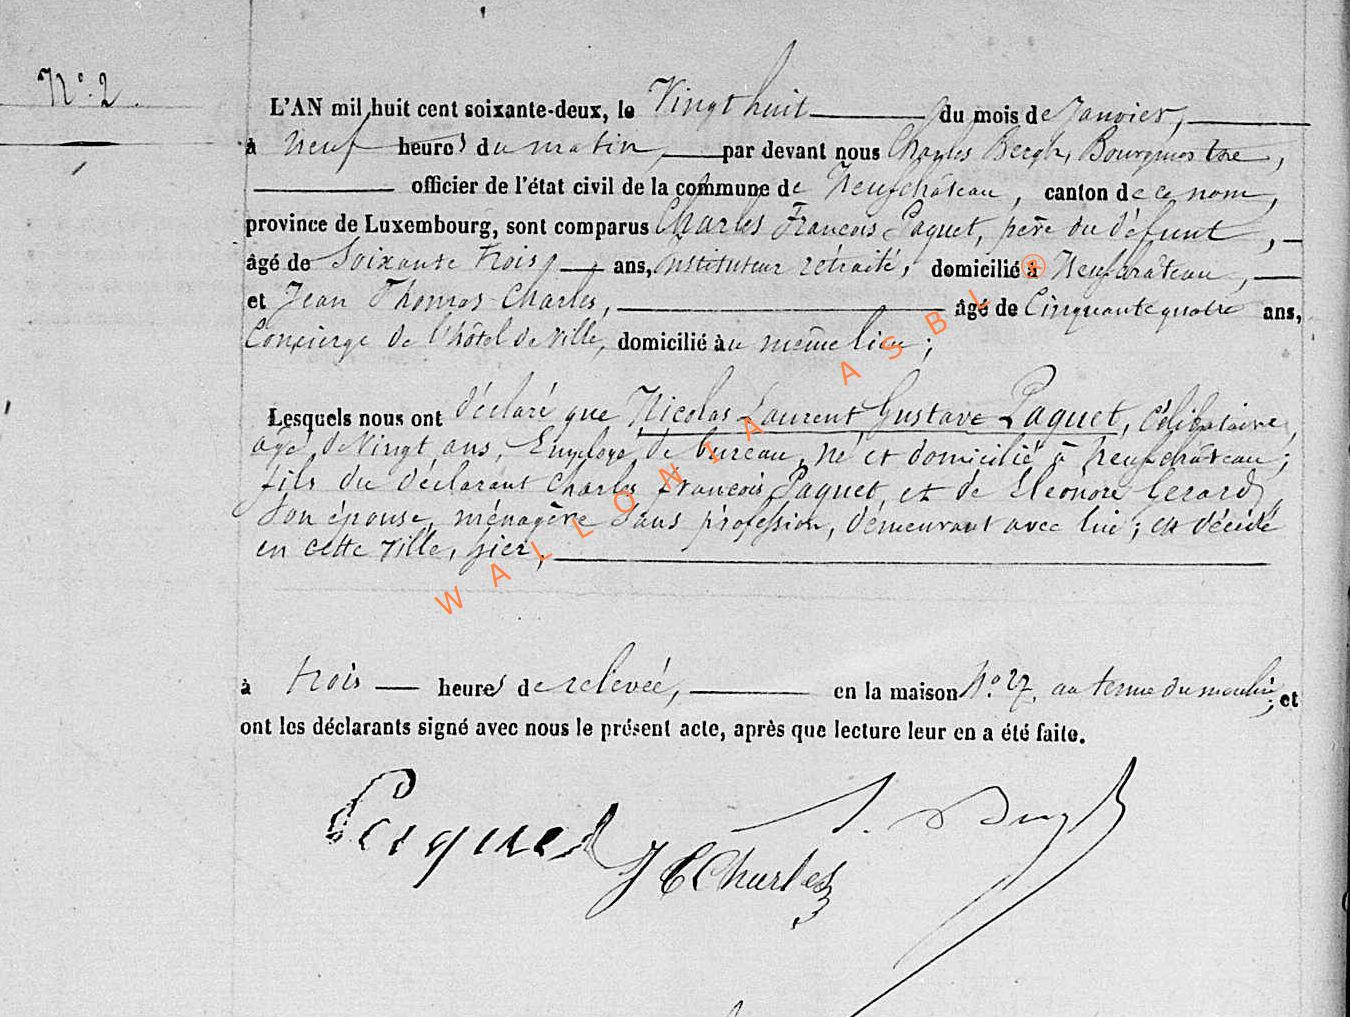 N° 2.
L'AN mil huit cent soixante-deux, le Vingt huit du mois de Janvier,
à neuf heures du matin, par devant nous Charles Bergh, Bourgmestre,
officier de l'état civil de la commune de Neufchâteau, canton de ce nom,
province de Luxembourg, sont comparus Charles François Paquet, père du défunt,
âgé de Soixante Trois, ans, instituteur retraité, domicilié à Neufchâteau,
et Jean Thomas Charles, âgé de Cinquante quatre ans,
Concierge de l'hôtel de Ville, domicilié au même lieu;
Lesquels nous ont déclaré que Nicolas Laurent Gustave Paquet, Célibataire,
age de Vingt ans, Employé de bureau, né et domicilié à Neufchâteau;
fils du déclarant Charles François Paquet, et de Eléonore Gerard,
Son épouse, ménagère sans profession, démeurant avec lui; est décédé
en cette ville, hier,
à trois heures de relevée, en la maison N° 27, au terme du moulin; et
ont les déclarants signé avec nous le présent acte, après que lecture leur en a été faite.
Paquet
J T Charles
WALLONIA ASBL ®